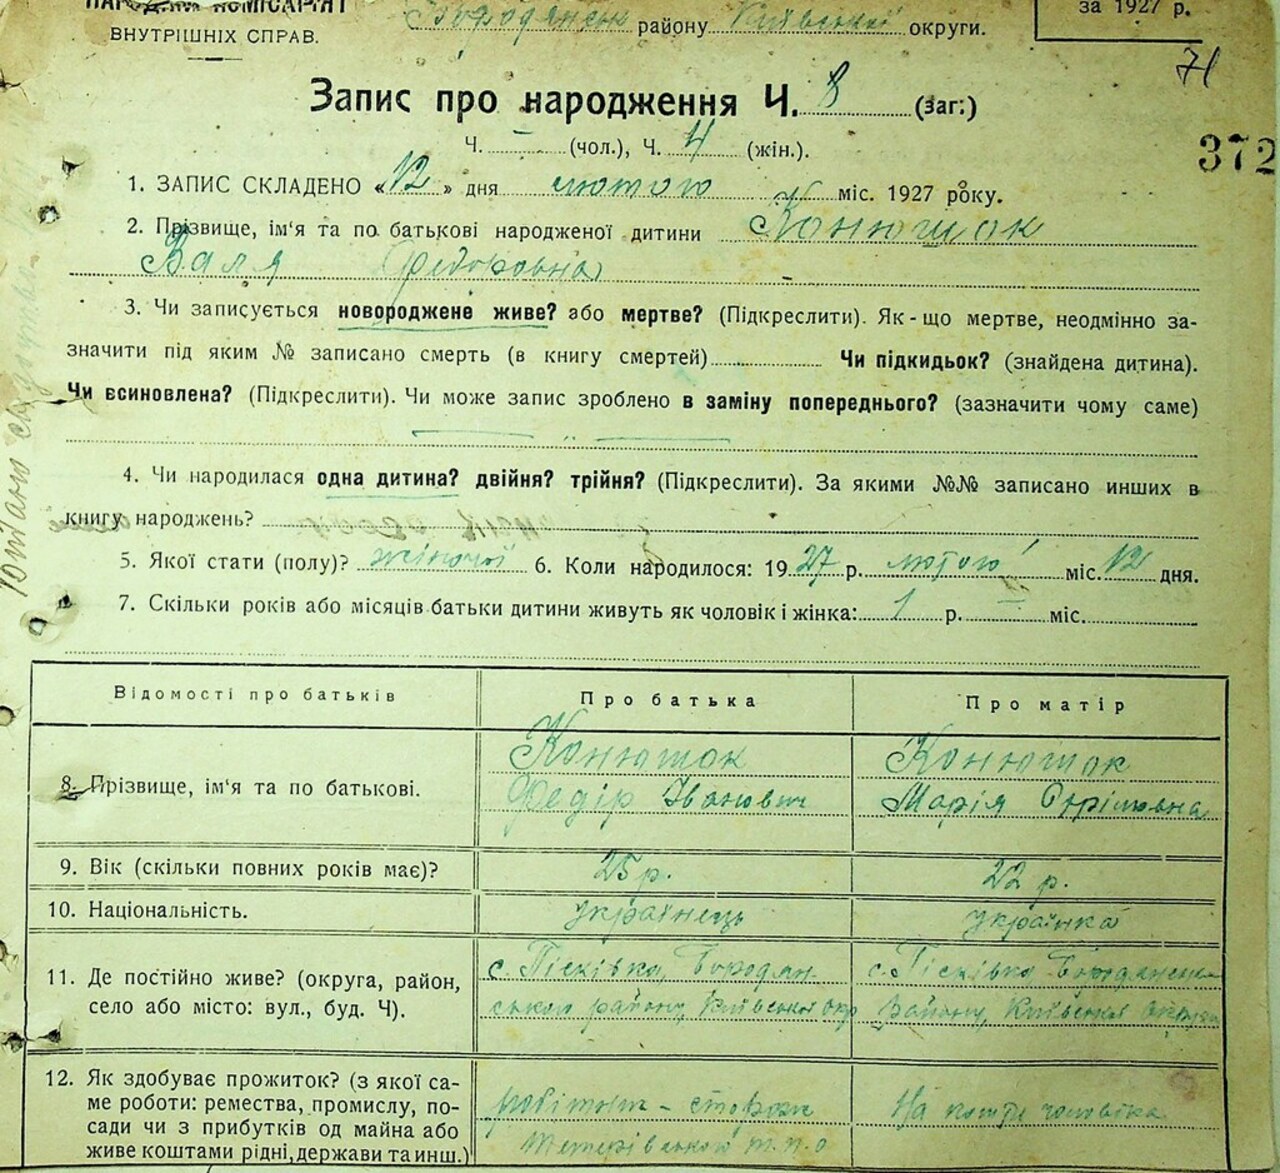 НАРОДНИЙ КОМІСАРІЯТ
ВНУТРІШНІХ СПРАВ.
Бородянськ району Київської округи.
за 1927 р.
71
Запис про народження Ч. 8 (заг.)
Ч. – (чол.), Ч. 4 (жін.).
372
1. ЗАПИС СКЛАДЕНО «12» дня лютого міс. 1927 року.
2. Прізвище, ім'я та по батькові народженої дитини Конюшок
Валя Федоровна
3. Чи записується новороджене живе? або мертве? (Підкреслити). Як-що мертве, неодмінно за-
значити під яким № записано смерть (в книгу смертей) Чи підкидьок? (знайдена дитина).
Чи всиновлена? (Підкреслити). Чи може запис зроблено в заміну попереднього? (зазначити чому саме)
4. Чи народилася одна дитина? двійня? трійня? (Підкреслити). За якими №№ записано инших в
книгу народжень?
5. Якої стати (полу)? жіночої 6. Коли народилося: 1927 р. лютого міс. 12 дня.
7. Скільки років або місяців батьки дитини живуть як чоловік і жінка: 1 р. – міс.
Відомості про батьків
Про батька
Про матір
8. Прізвище, ім'я та по батькові.
Конюшок
Федір Іванович
Конюшок
Марія
9. Вік (скільки повних років має)?
25 р.
22 р.
10. Національність.
українець
українка
11. Де постійно живе? (округа, район,
село або місто: вул., буд. Ч).
с. Пісківка, Бородян-
ського району, Київської окр
с. Пісківка Бородянськ
Району, Київської Округи
12. Як здобуває прожиток? (з якої са-
ме роботи: ремества, промислу, по-
сади чи з прибутків од майна або
живе коштами рідні, держави та инш.)
робітник - сторож
Тетерівського т.п.о
На кошти чоловіка